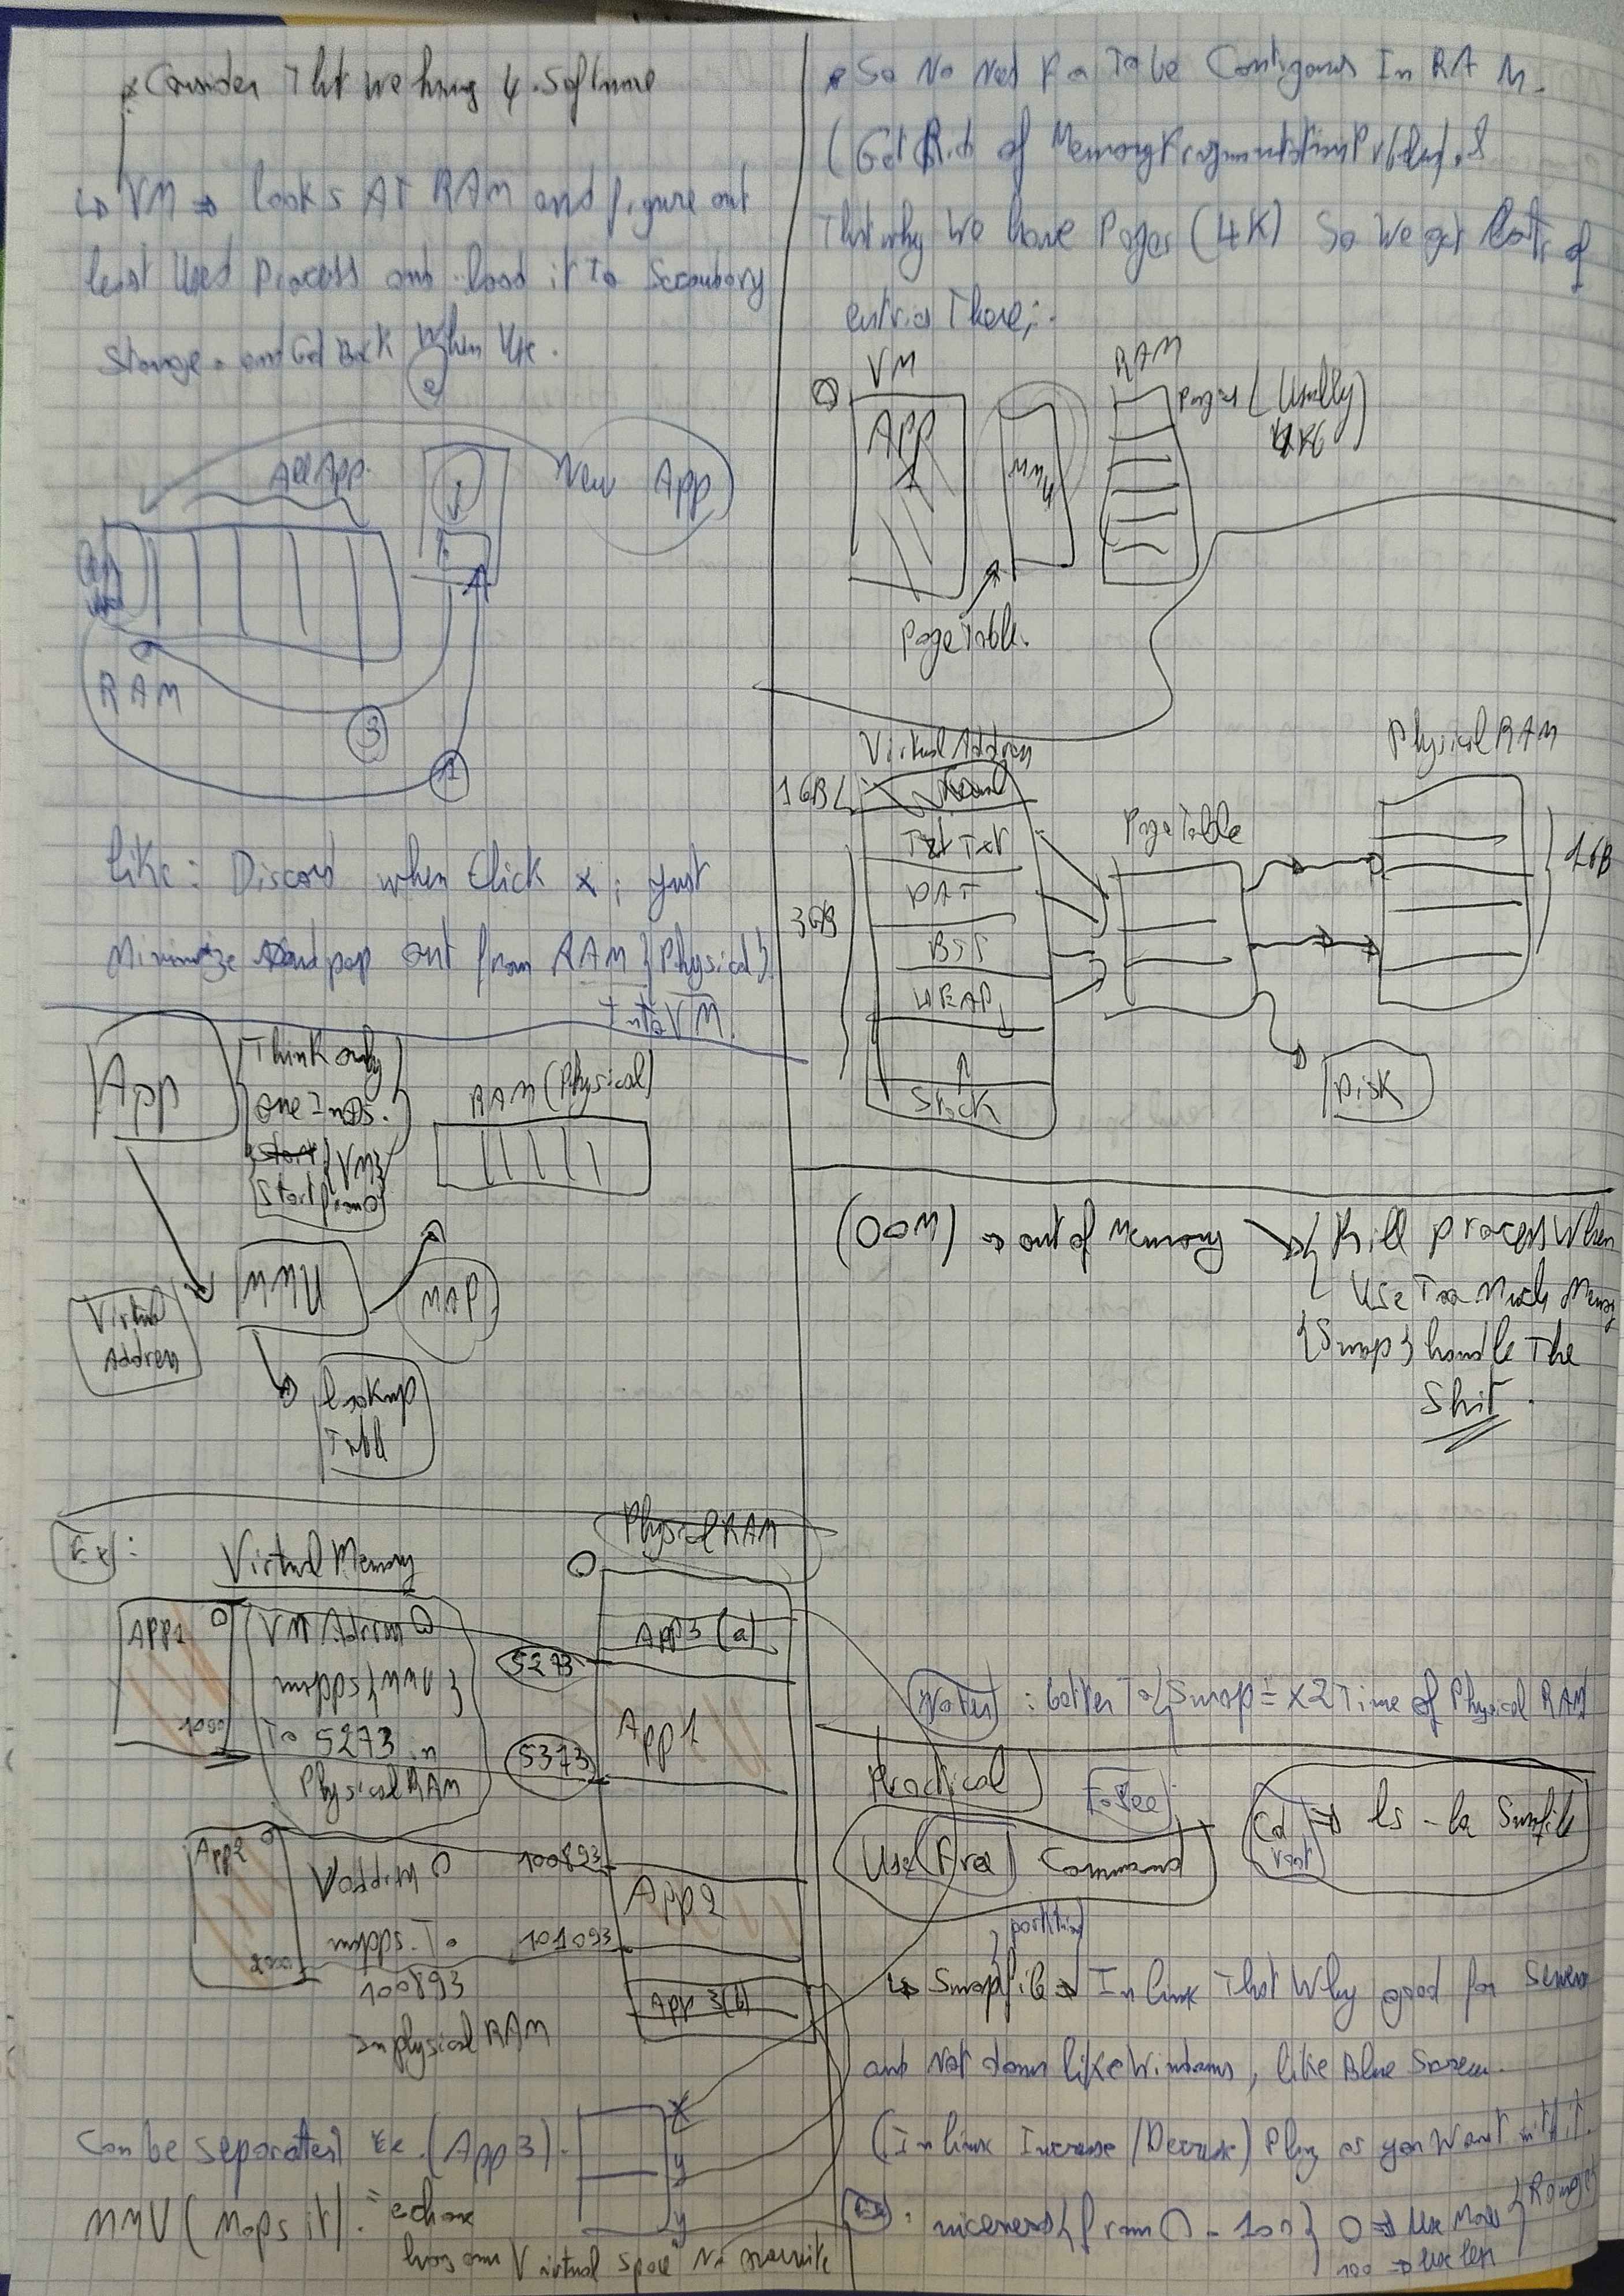 Consider Tht we hung 4 Software
↳ VM ⇒ looks AT RAM and figure out
least Used Process and load it To Secondary
Storage. and Get Back When Use.
2
All App.
New App
RAM
3
1
like: Discord when Click x; just
Minimize and pop out from RAM {Physical}
Into VM.
App
Think only
one In OS.
{VM}
Start from 0
RAM (Physical)
MMU
MAP
Virtual
Addres
lookup
Table
Ex:
Virtual Memory
Physical RAM
0
APP1
0
1000
VM Adress 0
mapps {MMU}
To 5273 in
Physical RAM
5273
5373
App3 (a)
App1
App2
0
2000
Vaddrss 0
mapps. To
100893
In physical RAM
100893
101093
App2
App 3(b)
Can be separated Ex. (App 3).
x
y
y
MMU (Maps it).
has own Virtual space
So No Need For To be Contigous In RAM.
(Get Rid of Memory Fragmentation Problem).
Tht why We have Pages (4K) So We get lots of
entries There;
0
VM
APP
1
MMU
RAM
Pages (Usually
4KB)
Page Table.
Virtual Addres
1GB
3GB
Text
DAT
BSS
HEAP
Stack
Page Table
Physical RAM
1GB
Disk
(OOM) ⇒ out of Memory
Kill process When
Use Too Much Memory
{Swap} handle The
Shit.
Notes : better To {Swap = x2 Time of Physical RAM
Practical
To See
Use Free Command
Cd
root
⇒ ls -la Swapfile
partition
↳ Swapfile ⇒ In linux That Why good for Server
and Not down like Windows, like Blue Screen.
(In linux Increase / Decrease) Play as you Want with it.
Ex: niceness {from 0 - 100} 0 ⇒ Use More
100 ⇒ Use less
Range